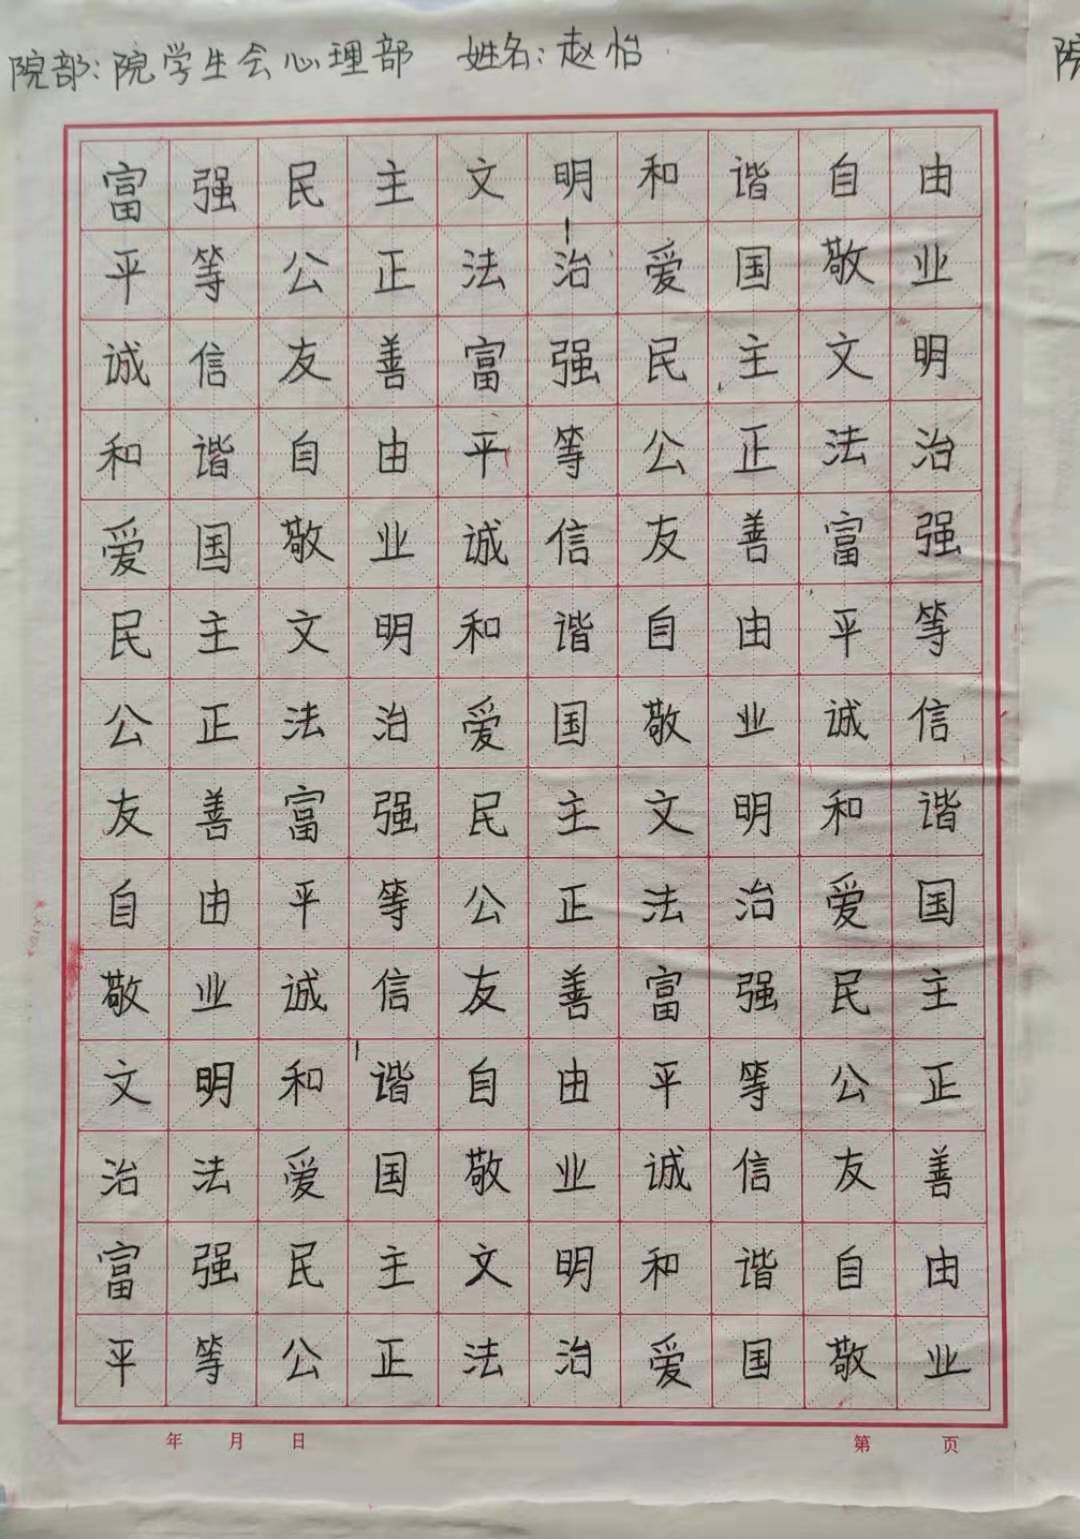 院部：院学生会心理部 姓名：赵怡
院
富强民主文明和谐自由
平等公正法治爱国敬业
诚信友善富强民主文明
和谐自由平等公正法治
爱国敬业诚信友善富强
民主文明和谐自由平等
公正法治爱国敬业诚信
友善富强民主文明和谐
自由平等公正法治爱国
敬业诚信友善富强民主
文明和谐自由平等公正
治法爱国敬业诚信友善
富强民主文明和谐自由
平等公正法治爱国敬业
年 月 日 第 页